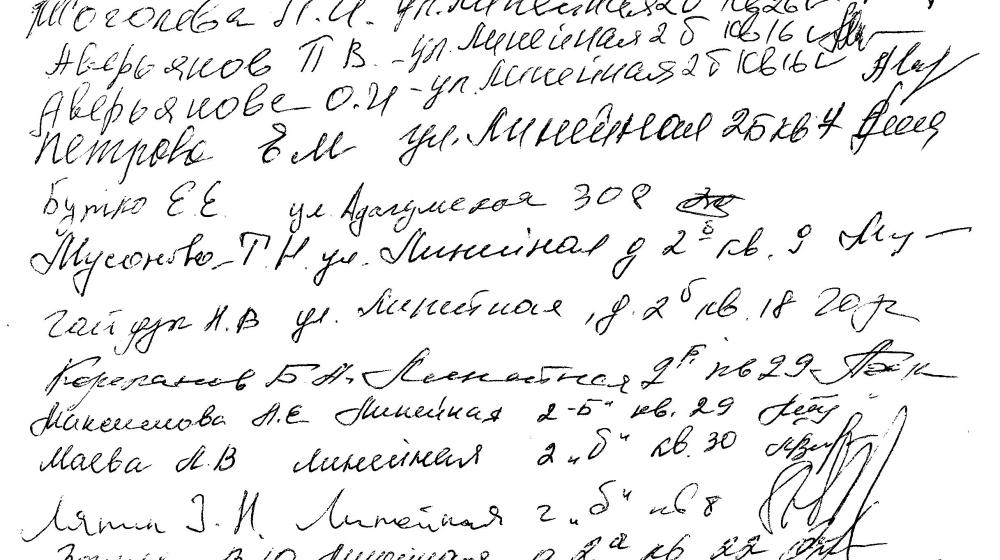 Моголева Л.И. ул. Линейная 2б кв 26
Аверьянов П В. - ул. Линейная 2 б кв 16
Аверьянова О.И - ул. Линейная 2б кв 16
Петрова Е М ул. Линейная 2б кв 4
Бутко Е Е ул Адагумская 308
Т.Н. ул. Линейная д 2б кв. 9
Гайдук Н.В ул. Линейная, д. 2б кв. 18
Корепанов Б Н. Линейная 2Б кв 29
Максимова А.Е Линейная 2-Б" кв. 29
Маева А.В Линейная 2 „б" кв. 30
Лятин З. Н. Линейная 2 „б" кв 8
В Ю Линейная д 2а кв 22